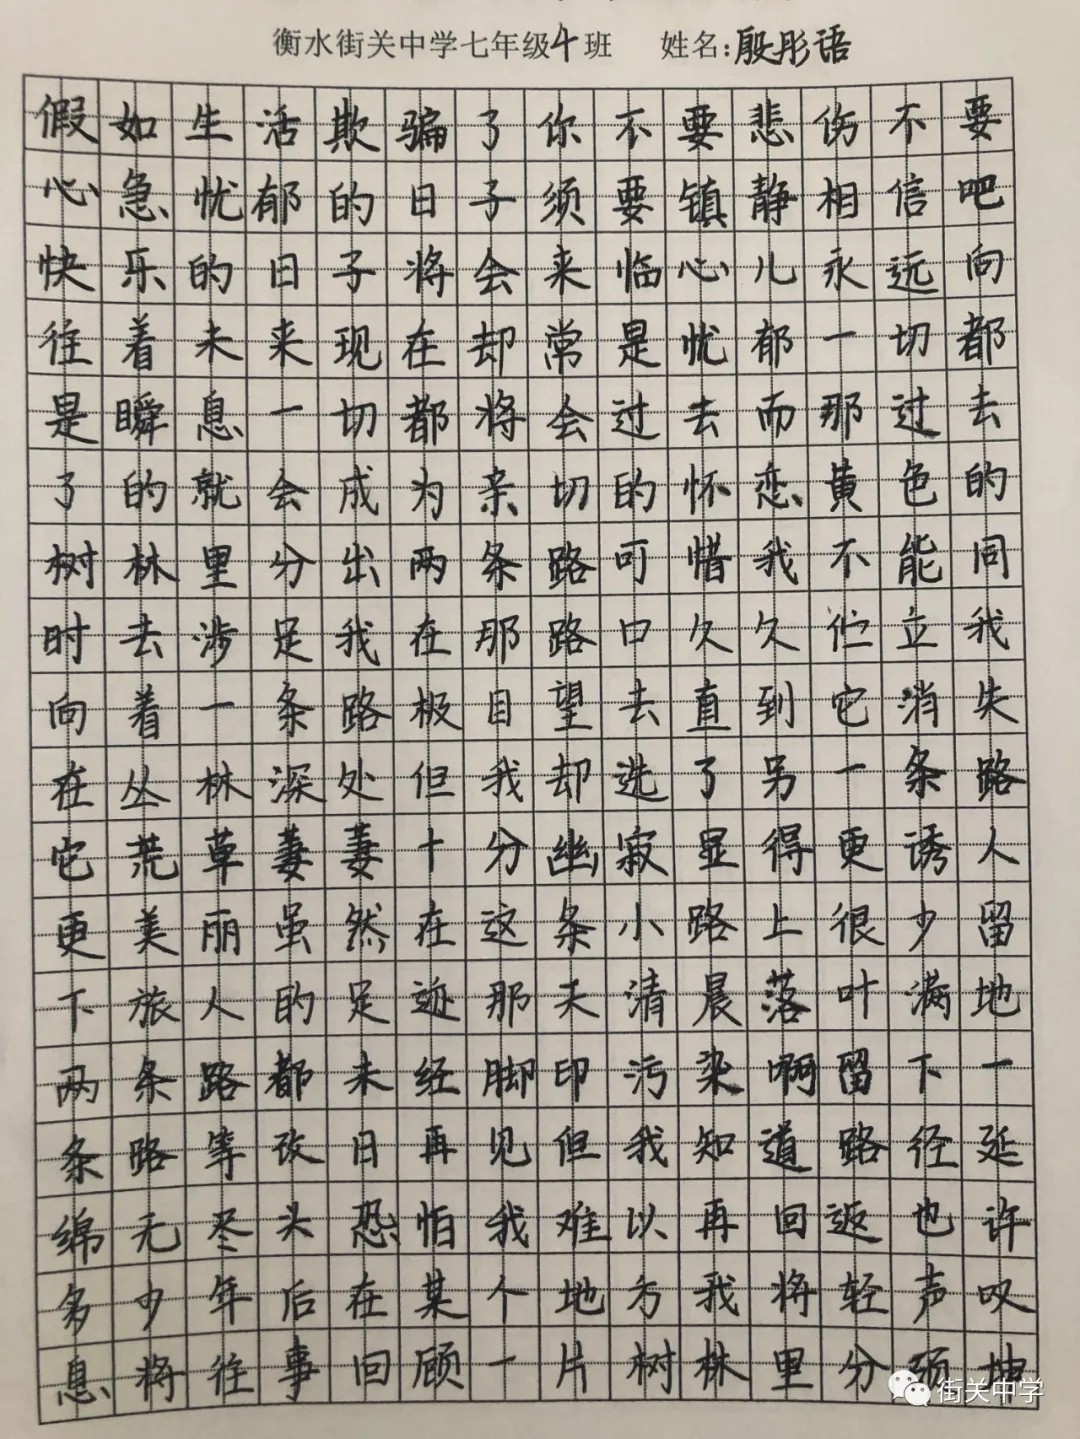 衡水街关中学七年级4班 姓名:殷彤语
假如生活欺骗了你不要悲伤不要
心急忧郁的日子须要镇静相信吧
快乐的日子将会来临心儿永远向
往着未来现在却常是忧郁一切都
是瞬息一切都将会过去而那过去
了的就会成为亲切的怀恋黄色的
树林里分出两条路可惜我不能同
时去涉足我在那路口久久伫立我
向着一条路极目望去直到它消失
在丛林深处但我却选了另一条路
它荒草萋萋十分幽寂显得更诱人
更美丽虽然在这条小路上很少留
下旅人的足迹那天清晨落叶满地
两条路都未经脚印污染啊留下一
条路等改日再见但我知道路径延
绵无尽头恐怕我难以再回返也许
多少年后在某个地方我将轻声叹
息将往事回顾一片树林里分
街关中学